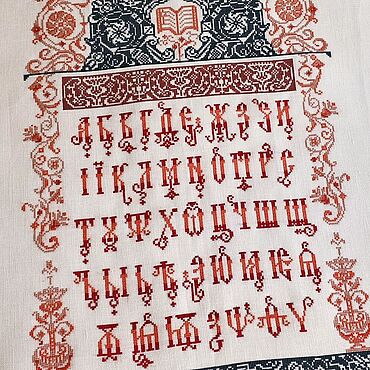 АБВГДЕЖЗЗИ
ІЇКЛМНОПРС
ТУФХѾЦЧШЩ
ЪЫЬѢЭЮѤѦ
ѪѬѨѮѰѲѴ